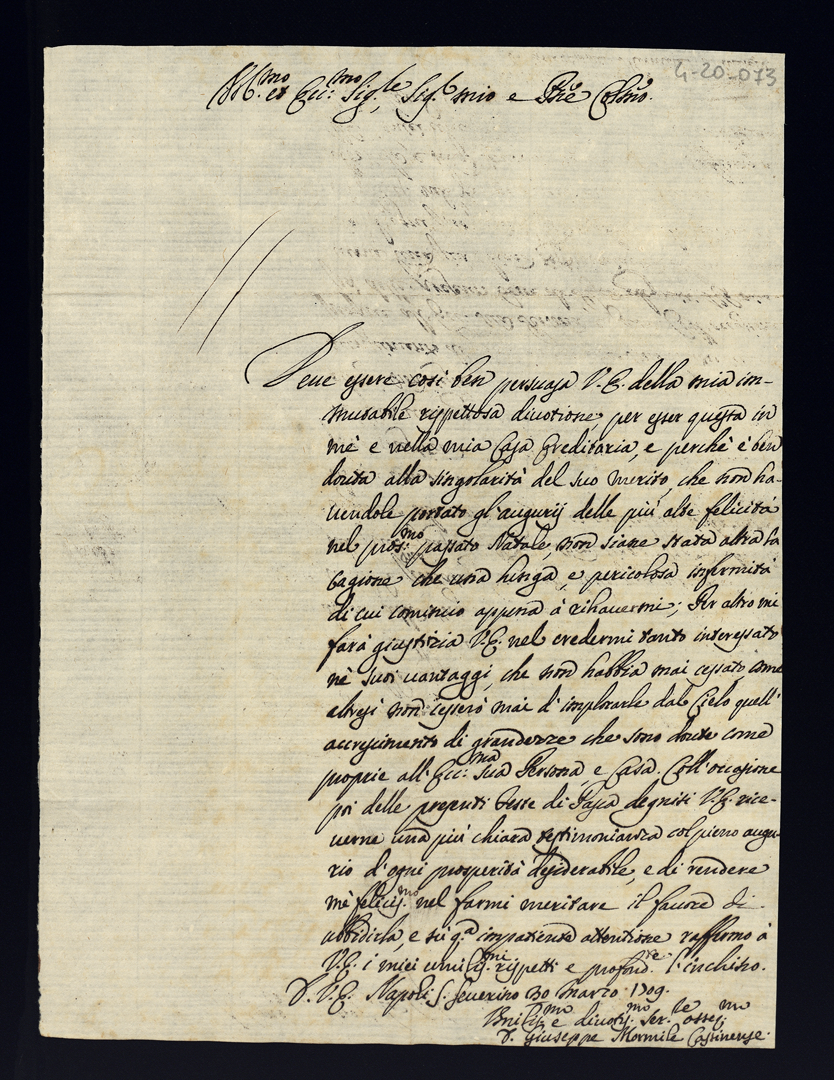 4-20-073
Ill.mo et Ecc.mo Sig.re Sig.r mio e Pne Colmo.
Deue essere così ben persuasa V.E. della mia im-
mutabile rispettosa diuotione, per esser questa in
mè e nella mia Casa Ereditaria, e perchè è ben
douuta alla singolarità del suo merito, che non ha-
uendole portato gl'augurij delle più alte felicità
nel pros.mo passato Natale, non siane stata altra la
cagione che una lunga, e pericolosa infermità
di cui comincio appena à rihauermi; Per altro mi
farà giustizia V.E. nel credermi tanto interessato
nè suoi uantaggi, che non habbia mai cessato, come
altresì non cesserò mai d'implorarle dal Cielo quell'
accrescimento di grandezze che sono douute come
proprie all'Ecc.ma Sua Persona, e Casa. Coll'occasione
poi delle presenti feste di Pasca degnisi V.E. rice-
uerne una più chiara testimonianza col pieno augu-
rio d'ogni prosperità desiderabile, e di rendere
mè felicis.mo nel farmi meritare il fauore di
obbidirla, e sù q.a impatiente attentione raffermo à
V.E. i miei umilis.mi rispetti e profond.te l'inchino.
D. V.E. Napoli S. Seuerino 30 Marzo 1709.
Vmilis.mo e diuotis.mo Ser.le osseq.mo
D. Giuseppe Mormile Casinense.